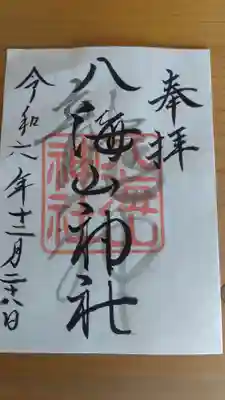 奉拝
八海山神社
令和六年十二月二十八日